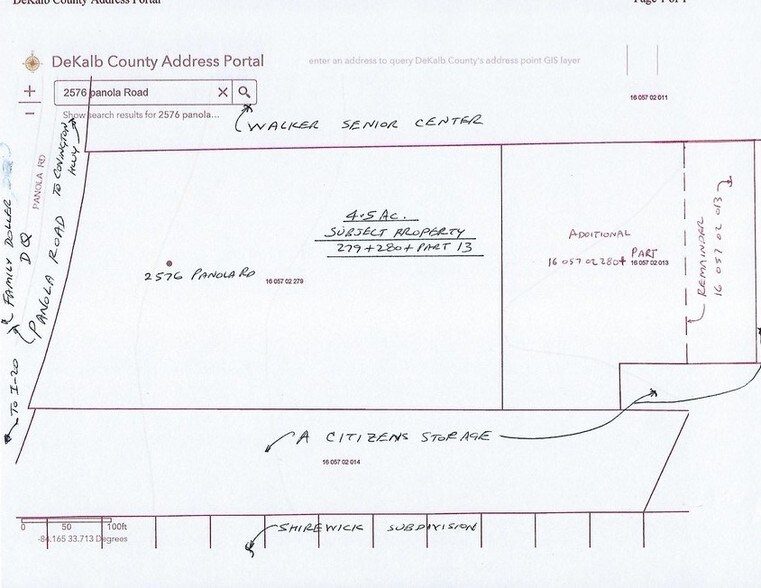 DeKalb County Address Portal
Page 1 of 1
DeKalb County Address Portal
enter an address to query DeKalb County's address point GIS layer
2576 panola Road
Show search results for 2576 panola...
16 057 02 011
WALKER SENIOR CENTER
PANOLA RD
PANOLA ROAD TO COVINGTON
HWY
FAMILY DOLLER
DQ
TO I-20
4.5 AC.
SUBJECT PROPERTY
279 + 280 + PART 13
2576 PANOLA RD
16 057 02 279
ADDITIONAL
PART
16 057 02 280 + 16 057 02 013
REMAINDER
16 057 02 013
A CITIZENS STORAGE
16 057 02 014
0 50 100ft
-84.165 33.713 Degrees
SHIREWICK SUBDIVISION